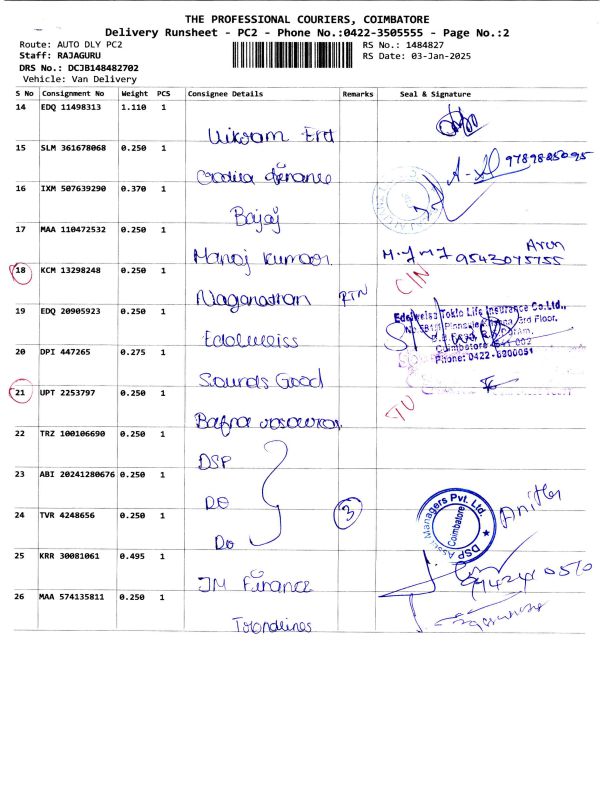 THE PROFESSIONAL COURIERS, COIMBATORE
Delivery Runsheet - PC2 - Phone No.:0422-3505555 - Page No.:2
Route: AUTO DLY PC2
RS No.: 1484827
Staff: RAJAGURU
RS Date: 03-Jan-2025
DRS No.: DCJB148482702
Vehicle: Van Delivery
S No Consignment No Weight PCS Consignee Details Remarks Seal & Signature
14 EDQ 11498313 1.110 1
Vikram Erd
15 SLM 361678068 0.250 1
9789885095
16 IXM 507639290 0.370 1
Bajaj
17 MAA 110472532 0.250 1
Manoj Kumar
Arun
9543075755
18 KCM 13298248 0.250 1
RTN
CIN
19 EDQ 20905923 0.250 1
Edelweiss
Edelweiss Tokio Life Insurance Co.Ltd.,
3rd Floor,
Coimbatore 641 002
Phone: 0422-6300051
20 DPI 447265 0.275 1
Sounds Good
21 UPT 2253797 0.250 1
Bafna
22 TRZ 100106690 0.250 1
DSP
23 ABI 20241280676 0.250 1
Do
24 TVR 4248656 0.250 1
Do
3
DSP Asset Managers Pvt. Ltd.
Coimbatore
25 KRR 30081061 0.495 1
JM Finance
26 MAA 574135811 0.250 1